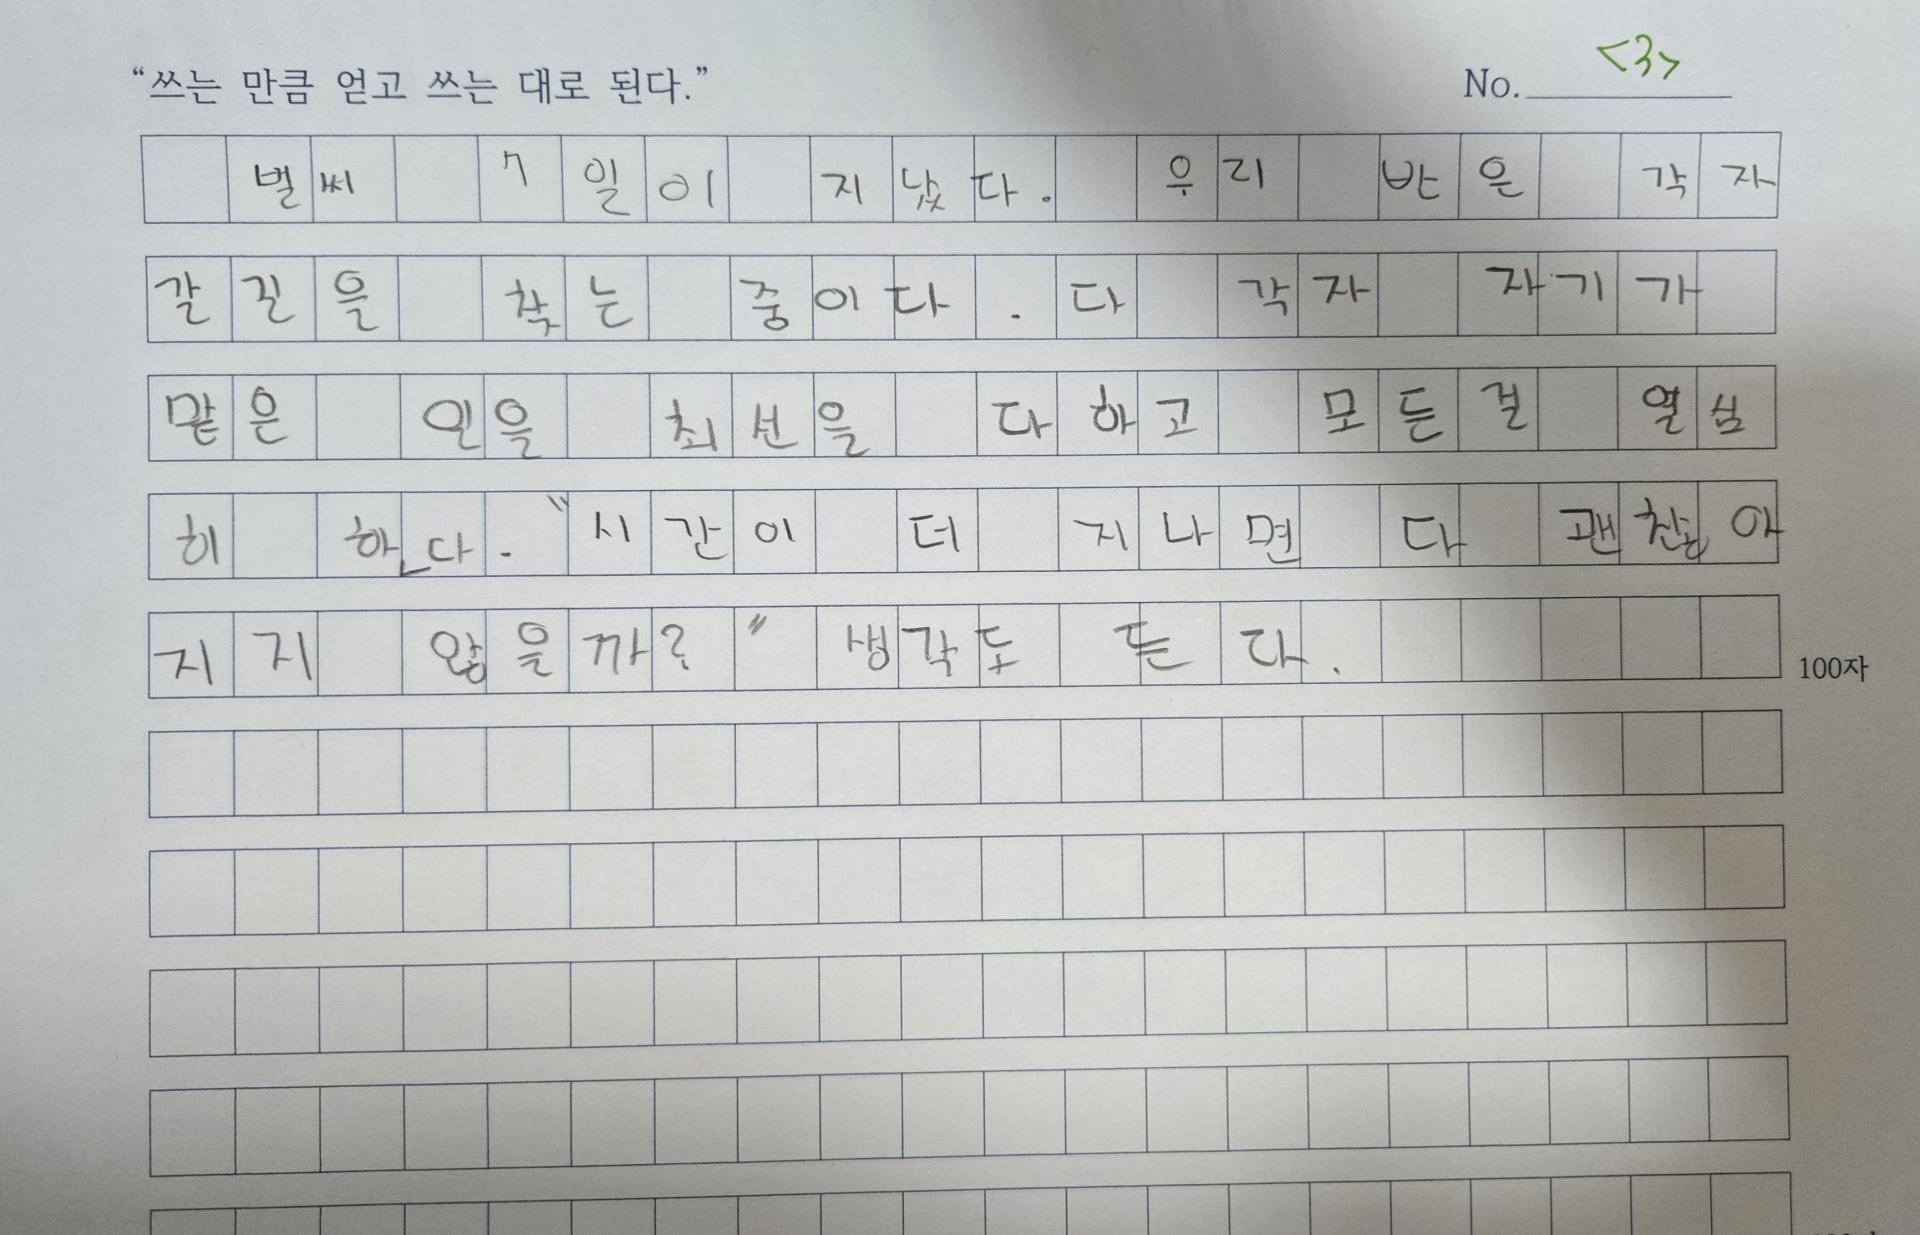 "쓰는 만큼 얻고 쓰는 대로 된다." No. <3>
벌써 7일이 지났다. 우리 반은 각자
갈 길을 찾는 중이다. 다 각자 자기가
맡은 일을 최선을 다하고 모든걸 열심
히 한다. "시간이 더 지나면 다 괜찮아
지지 않을까?" 생각도 든다.
100자